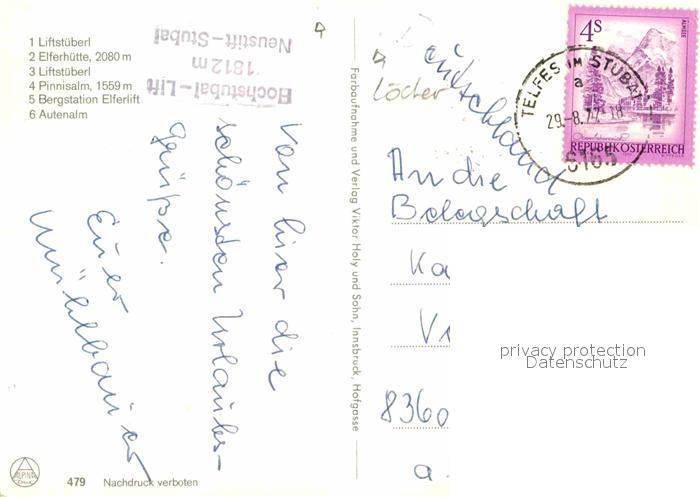 1 Liftstüberl
2 Elferhütte, 2080 m
3 Liftstüberl
4 Pinnisalm, 1559 m
5 Bergstation Elferlift
6 Autenalm
Hochstubai-Lift
1812 m
Neustift-Stubai
Von hier die
schönsten Urlaubs-
grüße.
Euer
Mühlbauer
479 Nachdruck verboten
ALPINA
Farbaufnahme und Verlag Viktor Holy und Sohn, Innsbruck, Hofgasse
Löcher
Deutschland
4S
ALMSEE
REPUBLIK ÖSTERREICH
TELFES IM STUBAI
a
29.-8.77-18
6165
An die
Belegschaft
Ka
Vi
8360
a.
privacy protection
Datenschutz